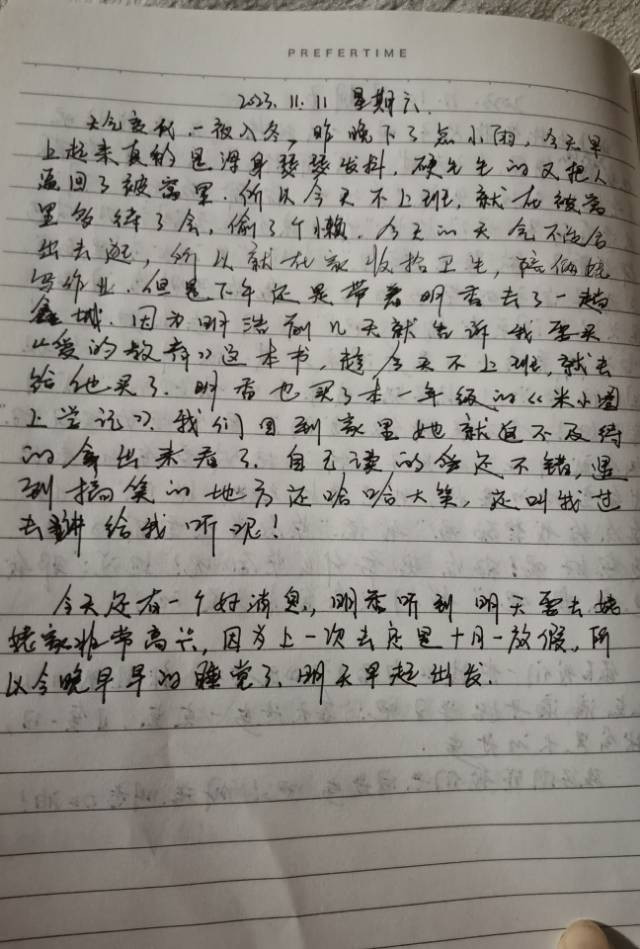 PREFERTIME
2023.11.11 星期六
天气变
一夜入冬,昨晚下了点小雨,今天早
上起来真的是浑身瑟瑟发抖,硬生生的又把人
逼回了被窝里.所以今天不上班,就在被窝
里多待了会,偷了个懒.今天的天气不适合
出去逛,所以就在家收拾卫生,陪俩娃
写作业.但是下午还是带着明香去了一趟
鑫城.因为明浩前几天就告诉我要买
《爱的教育》这本书,趁今天不上班,就去
给他买了.明香也买了本一年级的《米小圈
上学记》.我们回到家里她就迫不及待
的拿出来看了.自己读的还不错,遇
到搞笑的地方还哈哈大笑,还叫我过
去讲给我听呢!
今天还有一个好消息,明香听到明天要去姥
姥家非常高兴,因为上一次去应是十月一放假,所
以今晚早早的睡觉了.明天早起出发.